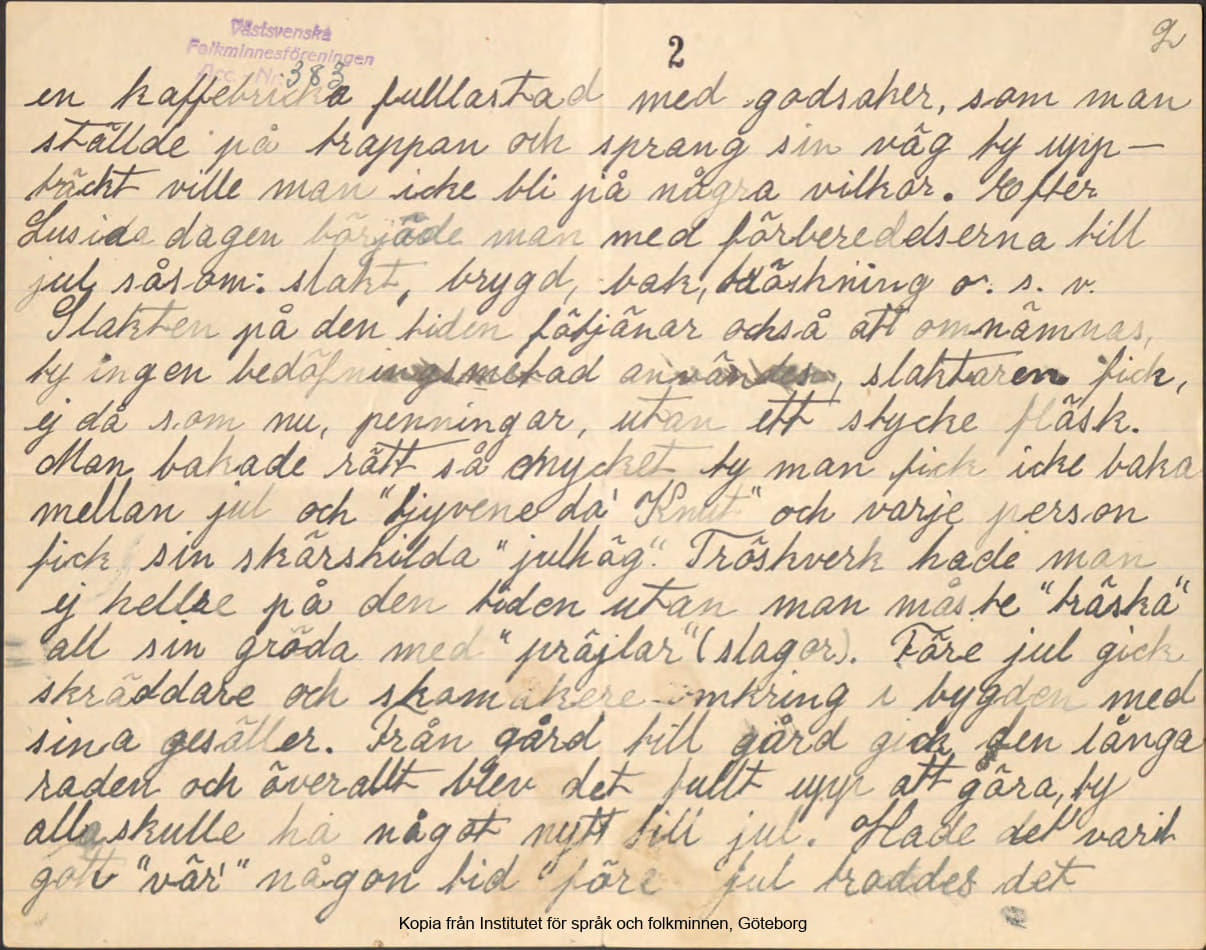 Västsvenska
Folkminnesföreningen
Acc. Nr. 383
2
2
en kaffebricka fulllastad med godsaker, som man
ställde på trappan och sprang sin väg ty upp-
täckt ville man icke bli på några vilkor. Efter
Lusida dagen började man med förberedelserna till
jul såsom: slakt, brygd, bak, tröskning o. s. v.
Slakten på den tiden förtjänar också att omnämnas,
ty ingen bedöfningsmetod användes, slaktaren fick,
ej då som nu, penningar, utan ett stycke fläsk.
Man bakade rätt så mycket ty man fick icke baka
mellan jul och "tjyvene då' Knut" och varje person
fick sin särskilda "julhög". Tröskverk hade man
ej heller på den tiden utan man måste "träska"
all sin gröda med "präjlar" (slagor). Före jul gick
skräddare och skomakere omkring i bygden med
sina gesäller. Från gård till gård gick den långa
raden och överallt blev det fullt upp att göra, ty
alla skulle ha något nytt till jul. Hade det varit
gott "vär" någon tid före jul troddes det
Kopia från Institutet för språk och folkminnen, Göteborg